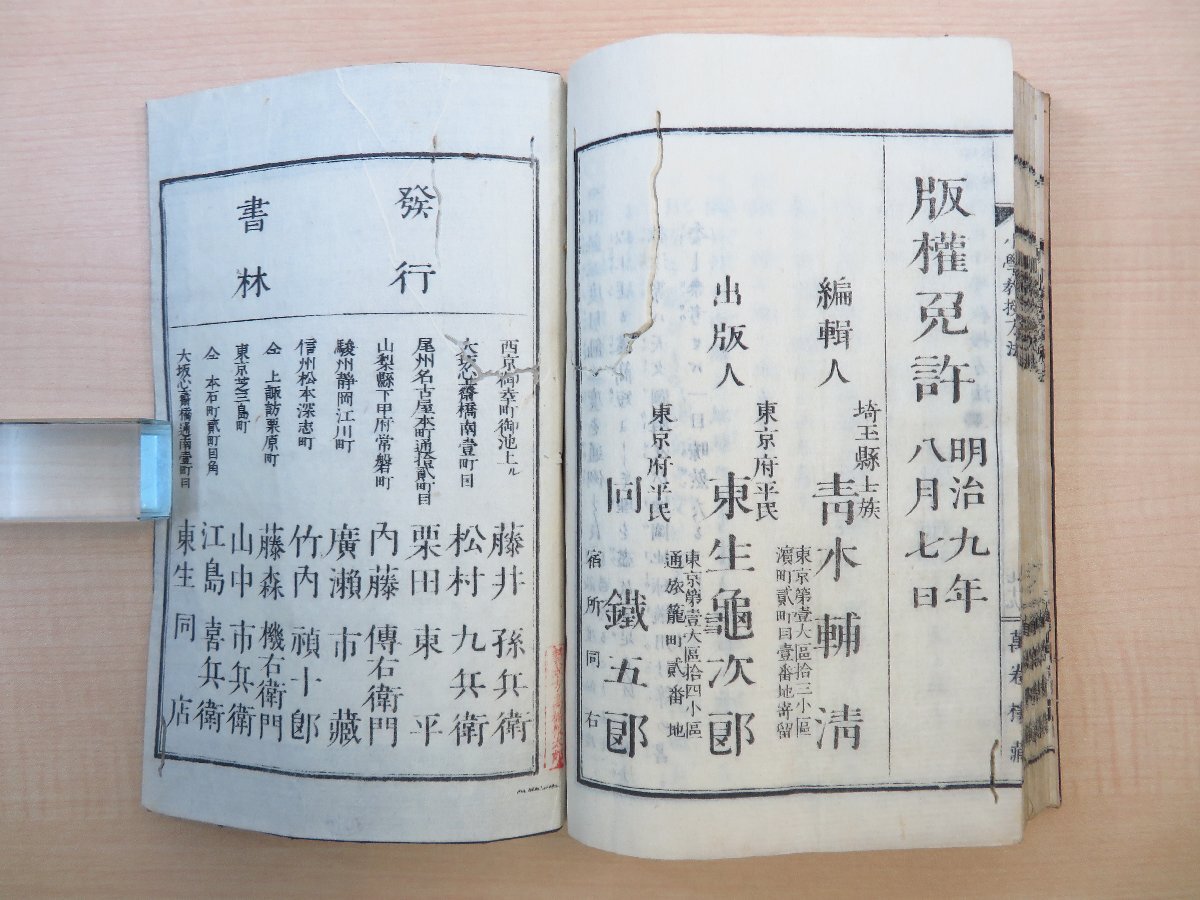 小學教授方法
萬卷樓藏
版權免許
明治九年
八月七日
編輯人
埼玉縣士族
青木輔清
東京第壹大區拾三小區
濱町貳町目壹番地寄留
出版人
東京府平民
東生龜次郎
東京第壹大區拾四小區
通旅籠町貳番地
東京府平民
同鐵五郎
宿所同右
發行
書林
西京御幸町御池上ル
藤井孫兵衛
大坂心齋橋南壹町目
松村九兵衛
尾州名古屋本町通拾貳町目
栗田東平
山梨縣下甲府常磐町
内藤傳右衛門
駿州静岡江川町
廣瀬市藏
信州松本深志町
竹内禎十郎
仝上諏訪栗原町
藤森機右衛門
東京芝三島町
山中市兵衛
仝本石町貳町目角
江島喜兵衛
大坂心齋橋通南壹町目
東生同店